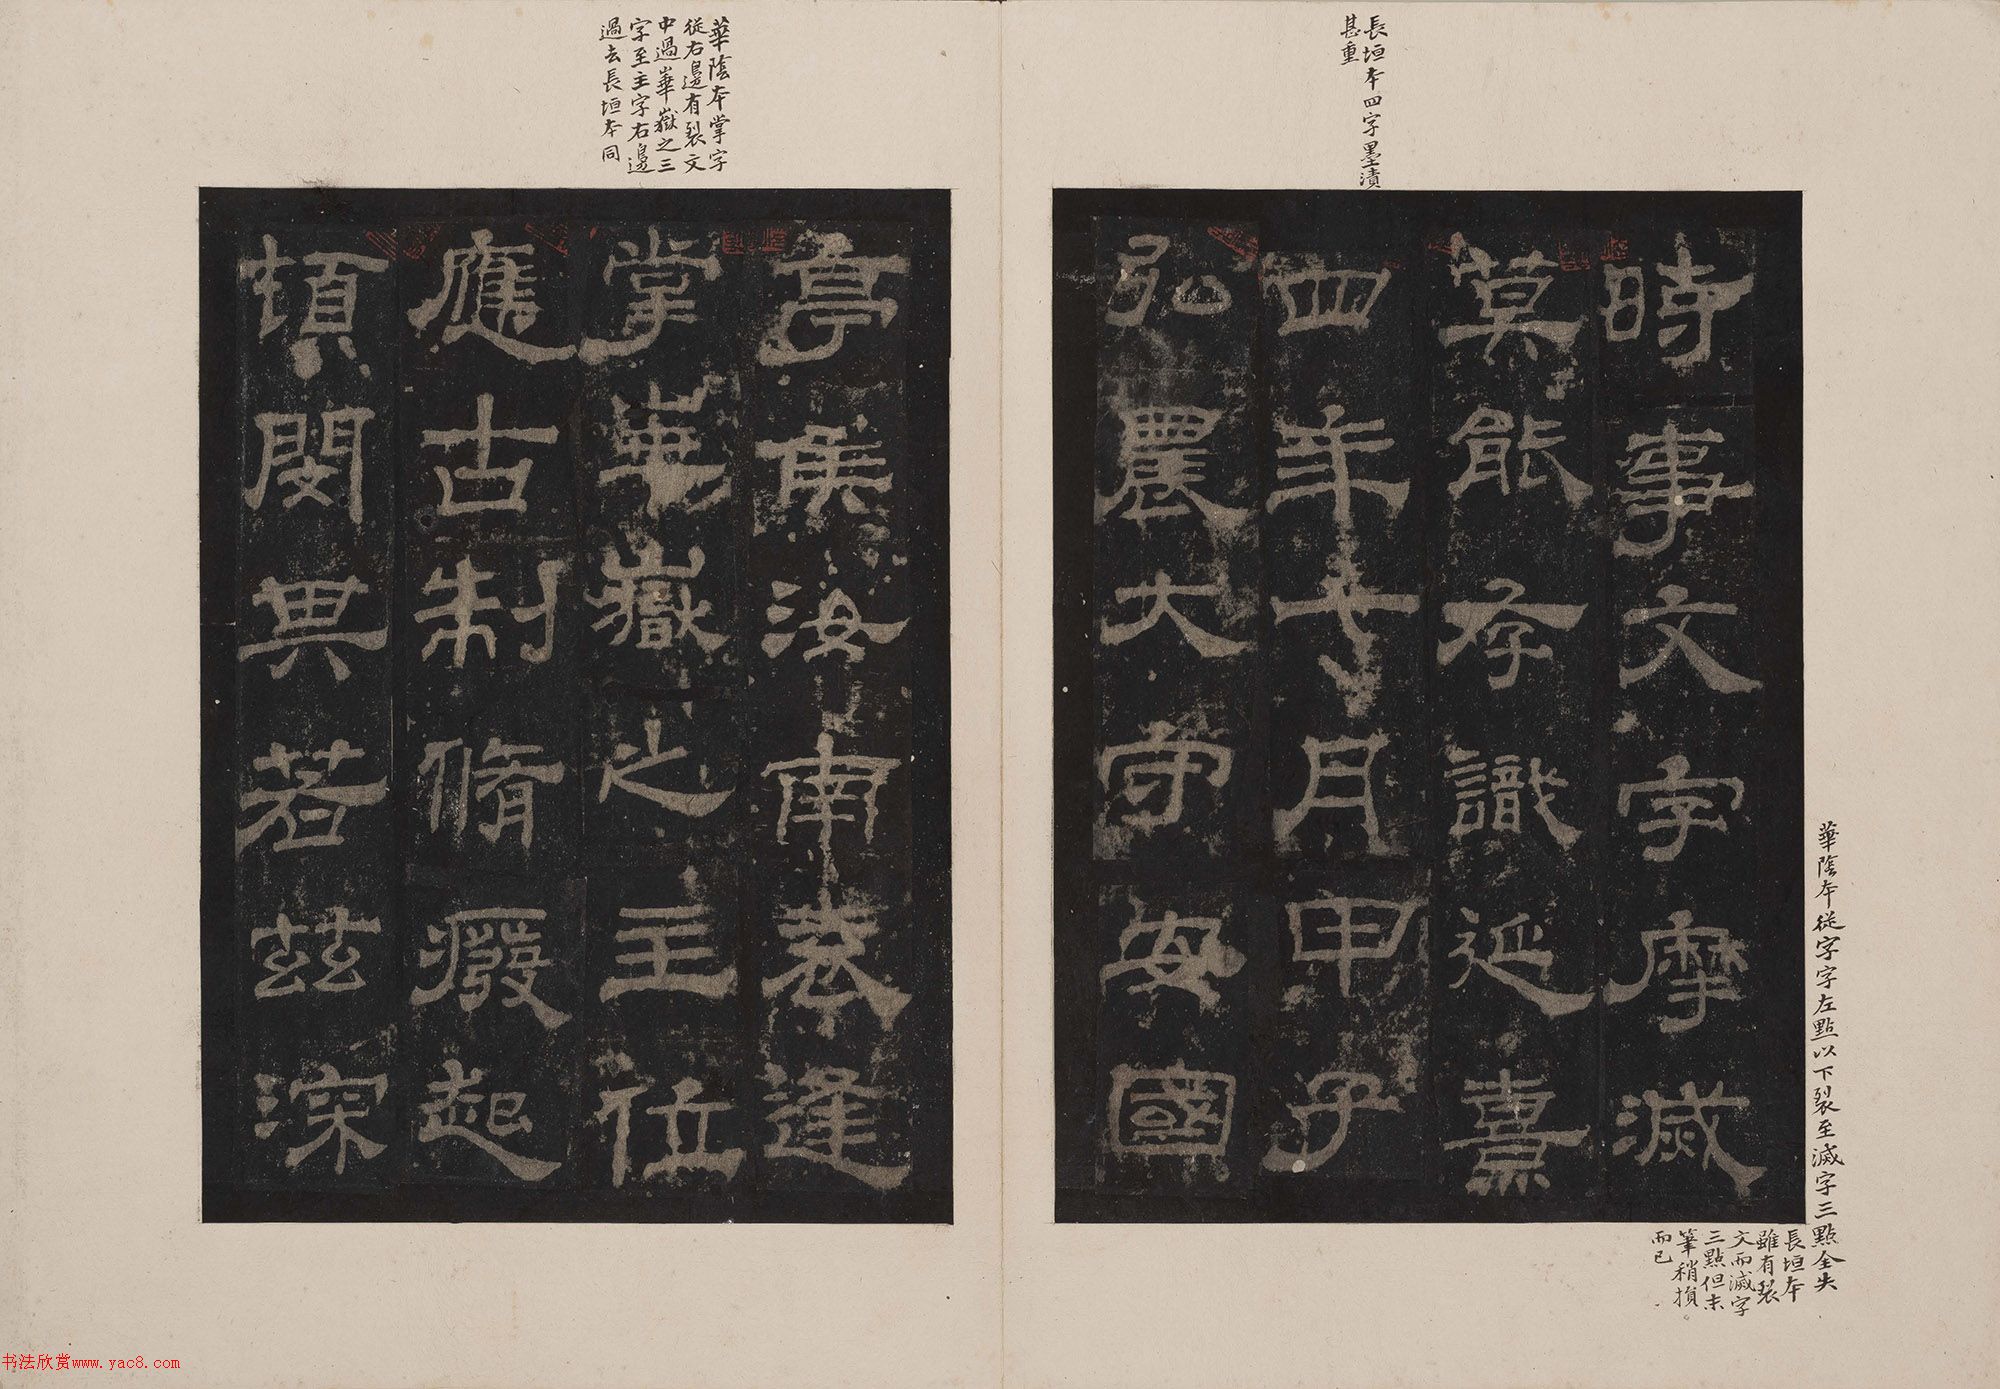 華陰本從字字左點以下裂至滅字三點全失
長垣本
雖有裂
文而滅字
三點但末
筆稍損
而已
時事文字摩滅
莫能存識延熹
長垣本四字墨漬
甚重
四年七月甲子
弘農大守安國
亭侯汝南袁逢
華陰本掌字
從右邊有裂文
中過華嶽之三
字至主字右邊
過去長垣本同
掌華嶽之主位
應古制脩癈起
頓閔其若茲深
书法欣赏www.yac8.com